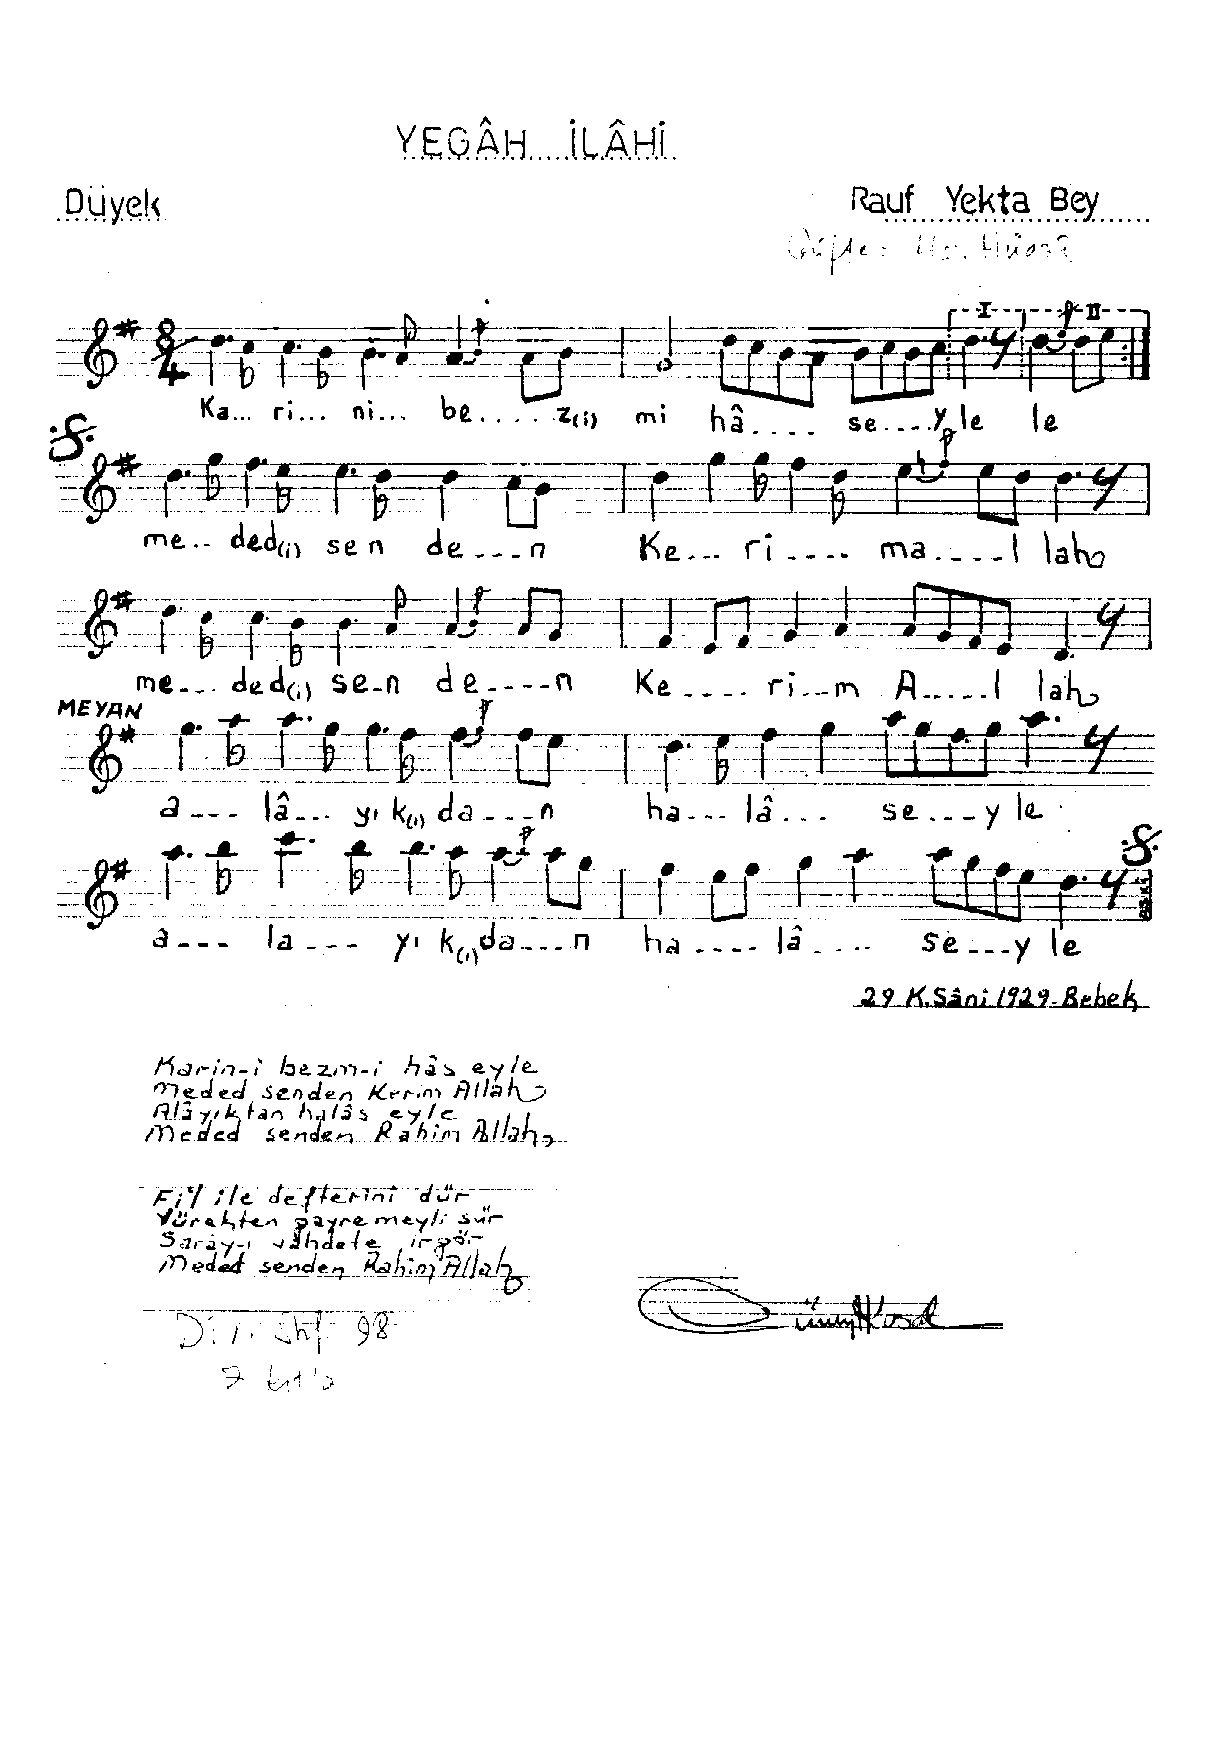 YEGÂH İLÂHİ
Düyek
Rauf Yekta Bey
Güfte: Hz. Hüdâî
I II
8/4
Ka... ri... ni... be.....z(i) mi hâ.... se....yle le
me.. ded(i) sen de...n Ke... ri.... ma....l lah
me... ded(i) se-n de....n Ke.... ri..m A....l lah
MEYAN
a... lâ... yı k(ı) da...n ha... lâ... se...y le
a... la... yı k(ı)da...n ha.... lâ.... se...y le
29 K.Sâni 1929-Bebek
Karin-i bezm-i hâs eyle
Meded senden Kerim Allah
Alâyıktan halâs eyle
Meded senden Rahim Allah
Fi'l ile defterini dür
Yürekten gayre meyli sür
Saray-ı vahdete irgör
Meded senden Rahim Allah
Div. shf 98
7 kıt'a